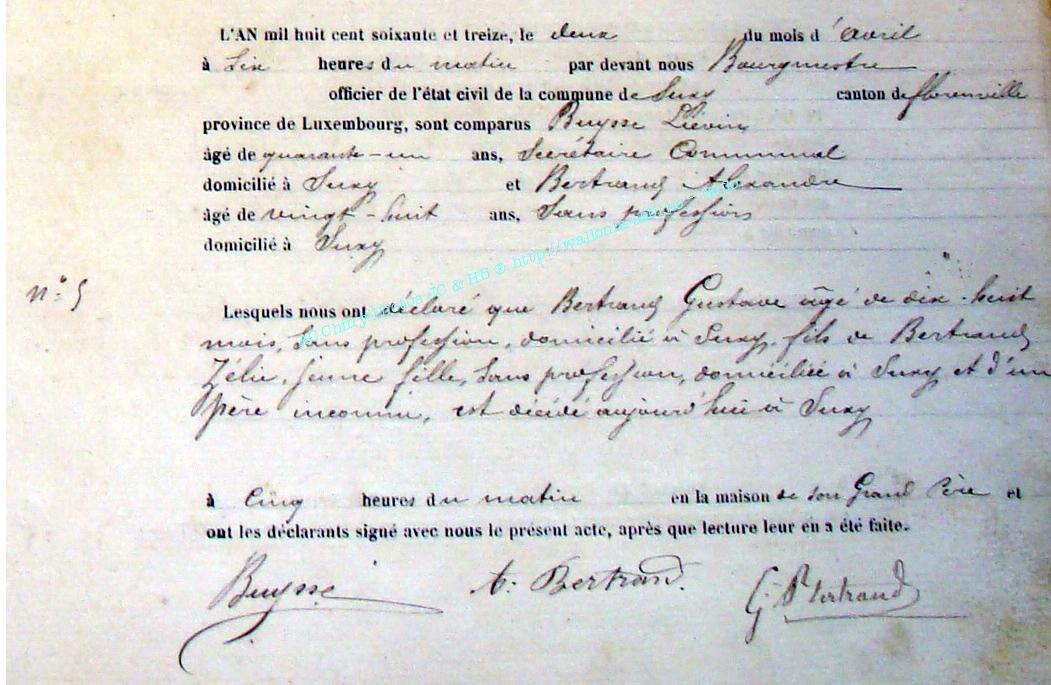 L'AN mil huit cent soixante et treize, le deux du mois d'avril
à Six heures du matin par devant nous Bourgmestre
officier de l'état civil de la commune de Suxy canton de florenville
province de Luxembourg, sont comparus Buysse Liévin
âgé de quarante-un ans, Secrétaire Communal
domicilié à Suxy et Bertrand Alexandre
âgé de vingt-huit ans, Sans profession
domicilié à Suxy
n° 5
Lesquels nous ont déclaré que Bertrand Gustave âgé de dix-huit
mois, sans profession, domicilié à Suxy, fils de Bertrand
Zélie, jeune fille, sans profession, domiciliée à Suxy et d'un
père inconnu, est décédé aujourd'hui à Suxy
à Cinq heures du matin en la maison de son Grand Père et
ont les déclarants signé avec nous le présent acte, après que lecture leur en a été faite.
Buysse A. Bertrand. G. Bertrand
JC & HB @ http://wallonie